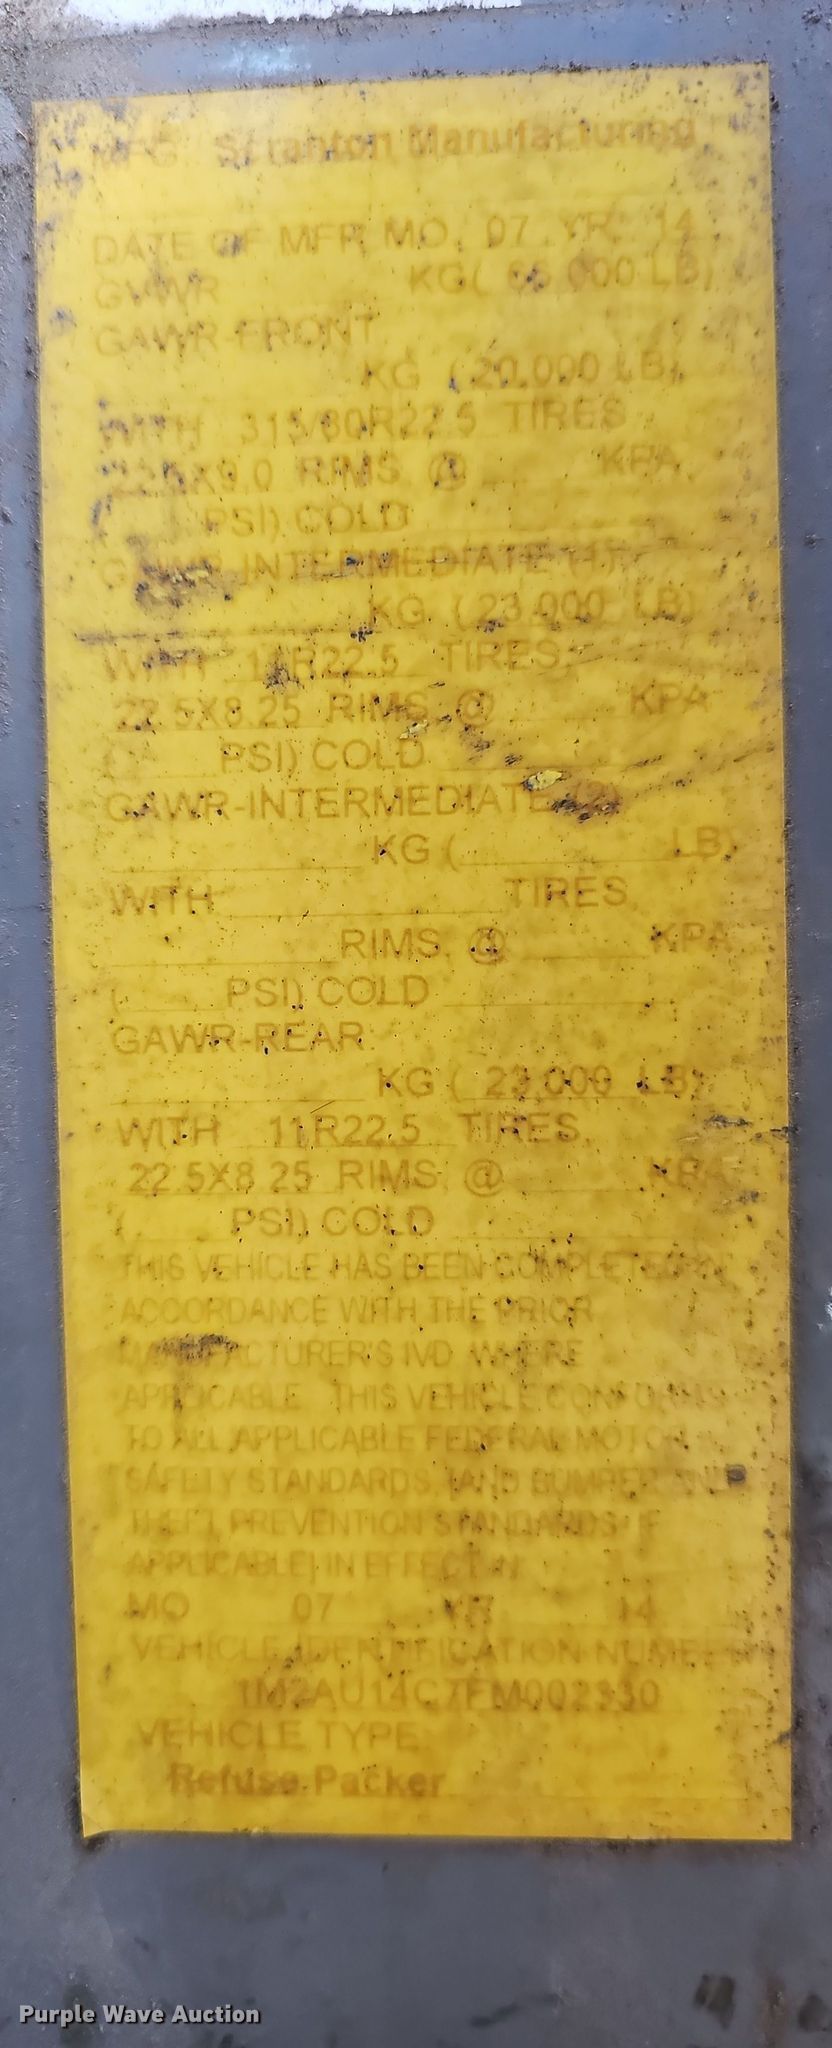 MFG. Scranton Manufacturing
DATE OF MFR MO. 07 YR. 14
GVWR KG( 66,000 LB)
GAWR-FRONT
KG (20,000 LB)
WITH 315/80R22.5 TIRES
22.5X9.0 RIMS @ KPA
( PSI) COLD
GAWR-INTERMEDIATE (1)
KG (23,000 LB)
WITH 11R22.5 TIRES
22.5X8.25 RIMS @ KPA
( PSI) COLD
GAWR-INTERMEDIATE (2)
KG ( LB)
WITH TIRES
RIMS @ KPA
( PSI) COLD
GAWR-REAR
KG ( 23,000 LB)
WITH 11R22.5 TIRES
22.5X8.25 RIMS @ KPA
( PSI) COLD
THIS VEHICLE HAS BEEN COMPLETED IN
ACCORDANCE WITH THE PRIOR
MANUFACTURER'S IVD WHERE
APPLICABLE. THIS VEHICLE CONFORMS
TO ALL APPLICABLE FEDERAL MOTOR
SAFETY STANDARDS, [AND BUMPER AND
THEFT PREVENTION STANDARDS IF
APPLICABLE] IN EFFECT IN
MO 07 YR 14
VEHICLE IDENTIFICATION NUMBER
1M2AU14C7FM002330
VEHICLE TYPE
Refuse Packer
Purple Wave Auction